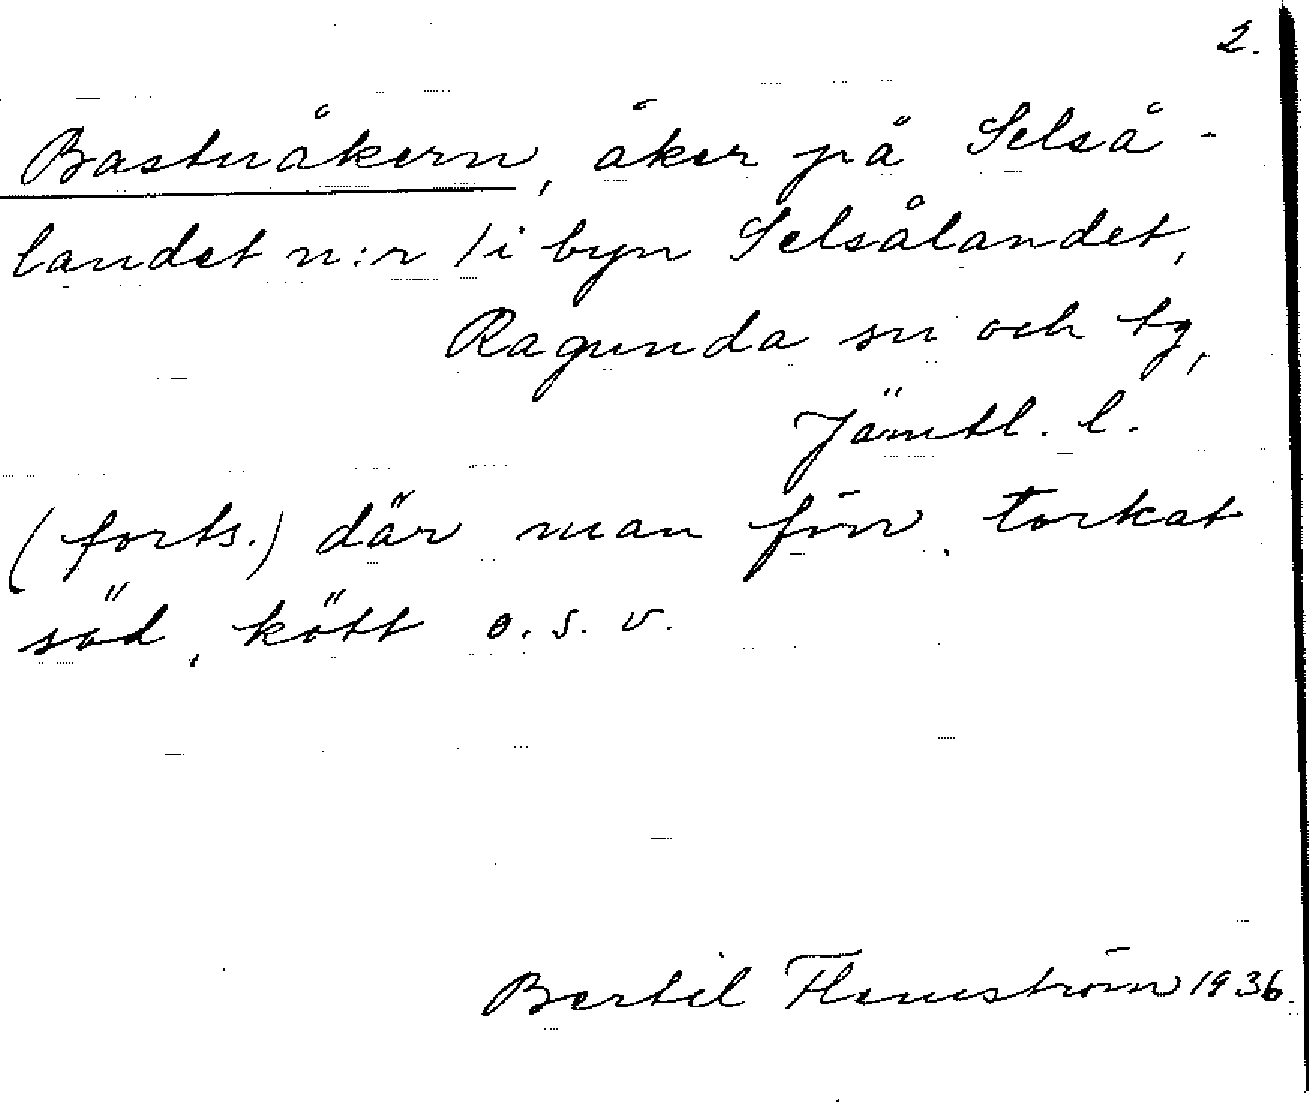 2.
Bastuåkern, åker på Selså-
landet n:r 1 i byn Selsålandet,
Ragunda sn och tg,
Jämtl. l.
(forts.) där man förr torkat
säd, kött o.s.v.
Bertil Flemström 1936.